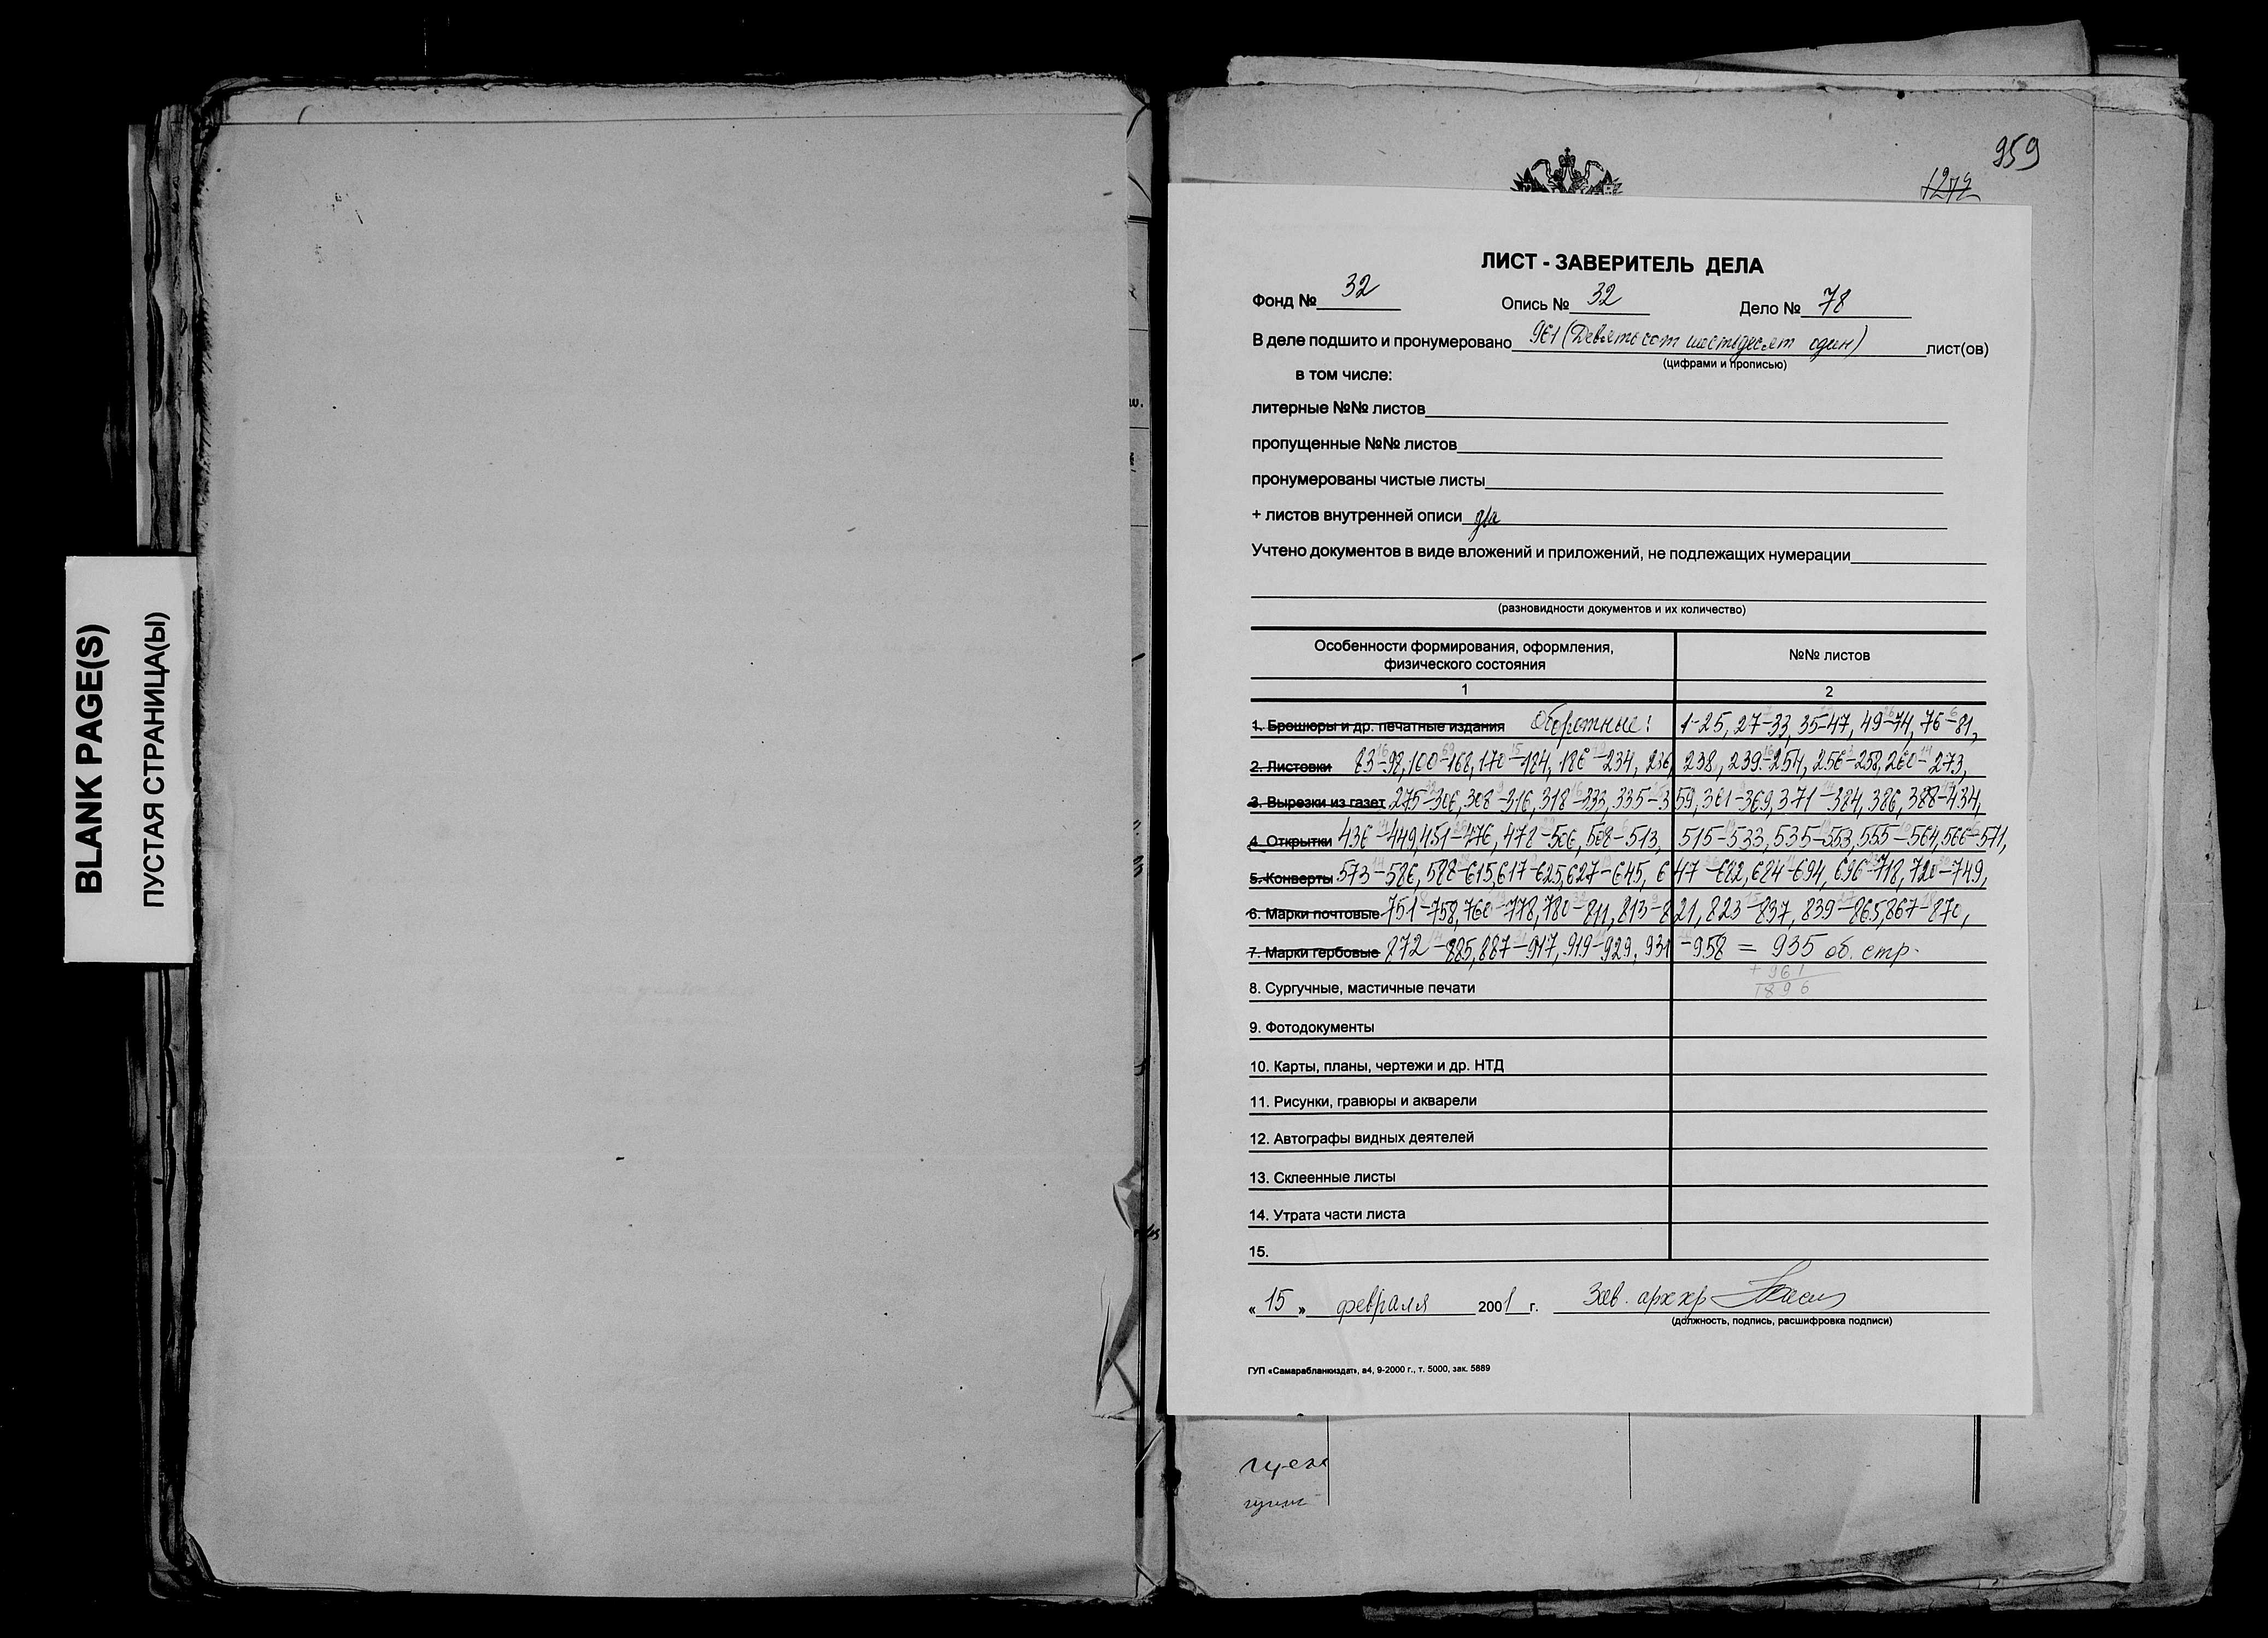 BLANK PAGE(S)
ПУСТАЯ СТРАНИЦА(Ы)
959
ЛИСТ - ЗАВЕРИТЕЛЬ ДЕЛА
Фонд № 32 Опись № 32 Дело № 78
В деле подшито и пронумеровано 961 (Девятьсот шестьдесят один) лист(ов)
(цифрами и прописью)
в том числе:
литерные №№ листов
пропущенные №№ листов
пронумерованы чистые листы
+ листов внутренней описи два
Учтено документов в виде вложений и приложений, не подлежащих нумерации
(разновидности документов и их количество)
Особенности формирования, оформления, физического состояния №№ листов
1 2
1. Брошюры и др. печатные издания Оборотные: 1-25, 27-33, 35-47, 49-74, 76-81,
2. Листовки 83-98, 100-168, 170-184, 186-234, 236, 238, 239-254, 256-258, 260-273,
3. Вырезки из газет 275-306, 308-316, 318-333, 335-359, 361-369, 371-384, 386, 388-434,
4. Открытки 436-449, 451-476, 478-506, 508-513, 515-533, 535-553, 555-564, 566-571,
5. Конверты 573-586, 588-615, 617-625, 627-645, 647-682, 684-694, 696-718, 720-749,
6. Марки почтовые 751-758, 760-778, 780-811, 813-821, 823-837, 839-865, 867-870,
7. Марки гербовые 872-885, 887-917, 919-929, 931-958 = 935 об. стр.
+ 961
1896
8. Сургучные, мастичные печати
9. Фотодокументы
10. Карты, планы, чертежи и др. НТД
11. Рисунки, гравюры и акварели
12. Автографы видных деятелей
13. Склеенные листы
14. Утрата части листа
15.
« 15 » февраля 2001 г. Зав. арххр
(должность, подпись, расшифровка подписи)
ГУП «Самарабланкиздат», а4, 9-2000 г., т. 5000, зак. 5889